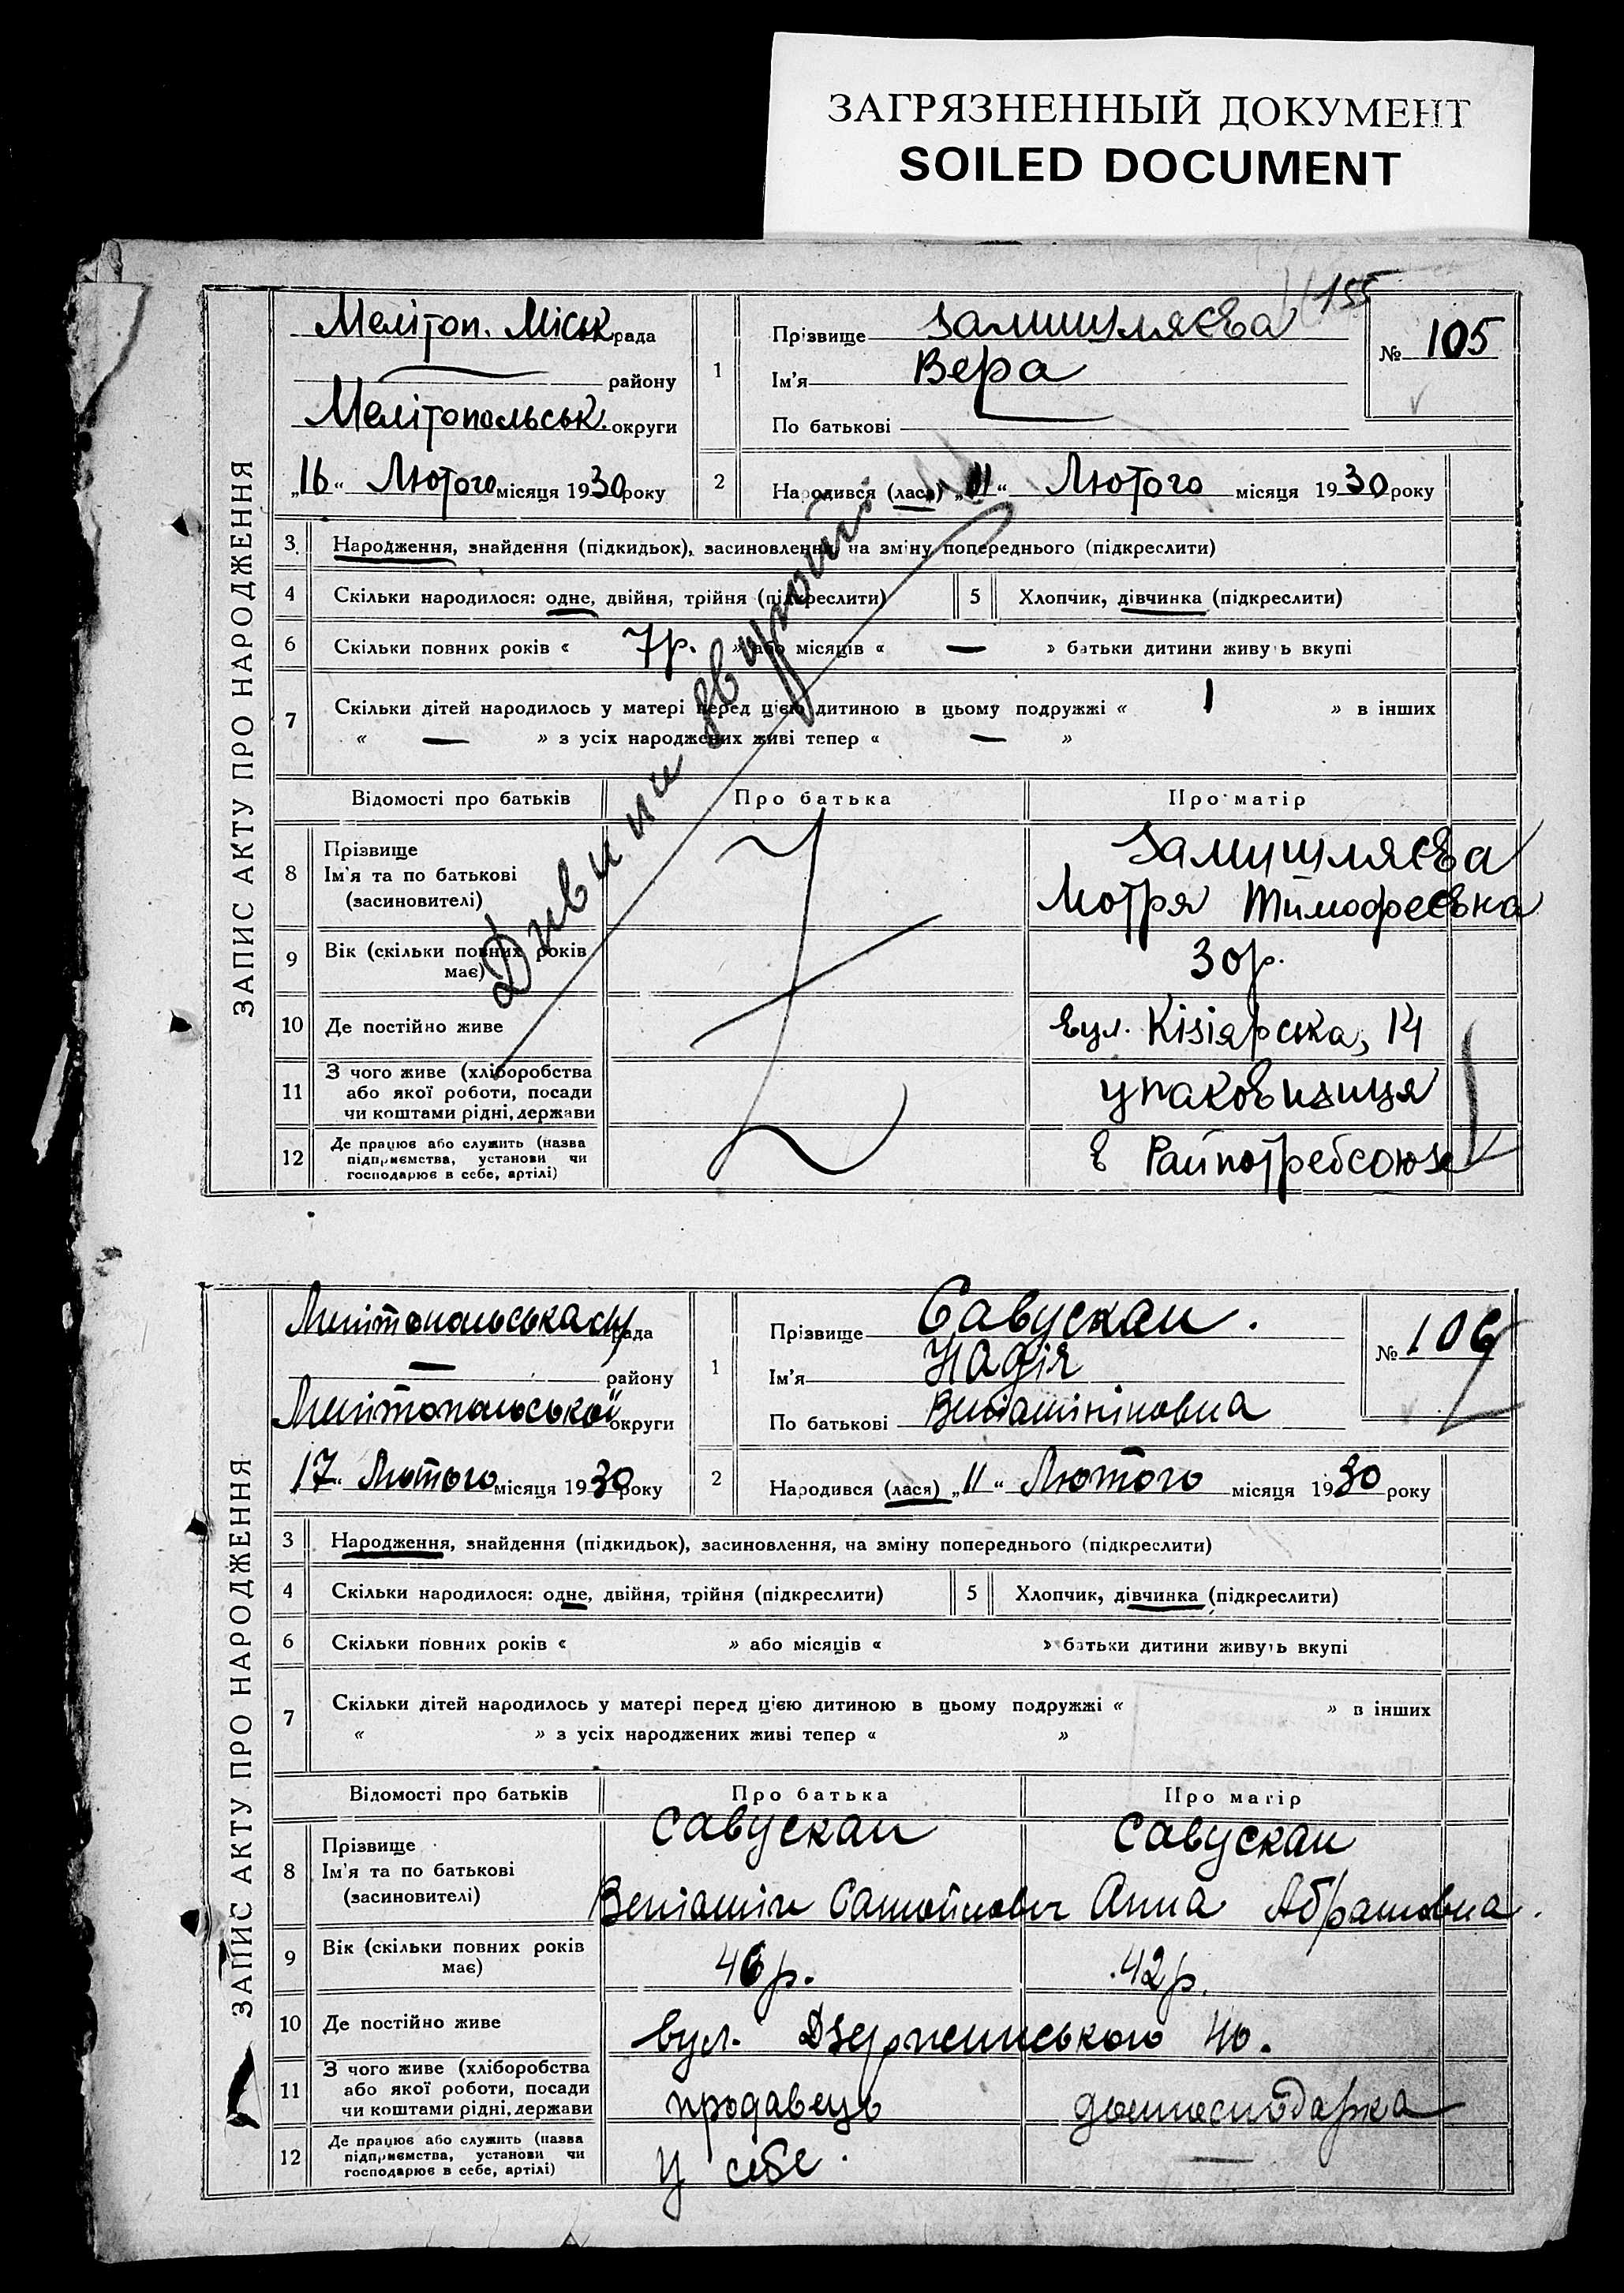 ЗАГРЯЗНЕННЫЙ ДОКУМЕНТ
SOILED DOCUMENT
155
ЗАПИС АКТУ ПРО НАРОДЖЕННЯ
Мелітоп. Міськрада
району
Мелітопольськ. округи
„16“ Лютого місяця 1930 року
1
Прізвище Замишляєва
Ім'я Вера
По батькові
№ 105
2
Народився (лася) „11“ Лютого місяця 1930 року
3. Народження, знайдення (підкидьок), засиновлення, на зміну попереднього (підкреслити)
4 Скільки народилося: одне, двійня, трійня (підкреслити) 5 Хлопчик, дівчинка (підкреслити)
6 Скільки повних років « 7р. » або місяців « — » батьки дитини живуть вкупі
7 Скільки дітей народилось у матері перед цією дитиною в цьому подружжі « 1 » в інших
« — » з усіх народжених живі тепер « — »
Дивини
Відомості про батьків Про батька Про матір
8 Прізвище
Ім'я та по батькові
(засиновителі)
Замишляєва
Мотря Тимофеєвна
9 Вік (скільки повних років
має)
30р.
10 Де постійно живе
вул. Кізіярська, 14
11 З чого живе (хліборобства
або якої роботи, посади
чи коштами рідні, держави
упаковщиця
12 Де працює або служить (назва
підприємства, установи чи
господарює в себе, артілі)
в Райпотребсоюзе
ЗАПИС АКТУ ПРО НАРОДЖЕННЯ
Мелітопольська рада
— району
Мелітопольської округи
17 Лютого місяця 1930 року
1
Прізвище Савускан.
Ім'я Надія
По батькові Веніамініновна
№ 106
2
Народився (лася) „11“ Лютого місяця 1930 року
3 Народження, знайдення (підкидьок), засиновлення, на зміну попереднього (підкреслити)
4 Скільки народилося: одне, двійня, трійня (підкреслити) 5 Хлопчик, дівчинка (підкреслити)
6 Скільки повних років « » або місяців « » батьки дитини живуть вкупі
7 Скільки дітей народилось у матері перед цією дитиною в цьому подружжі « » в інших
« » з усіх народжених живі тепер « »
Відомості про батьків Про батька Про матір
8 Прізвище
Ім'я та по батькові
(засиновителі)
Савускан Савускан
Веніамін Самойлович Анна Абрамовна.
9 Вік (скільки повних років
має)
46р. 42р.
10 Де постійно живе
вул. Дзержинського 40.
11 З чого живе (хліборобства
або якої роботи, посади
чи коштами рідні, держави
продавець домгосподарка
12 Де працює або служить (назва
підприємства, установи чи
господарює в себе, артілі)
У себе. —